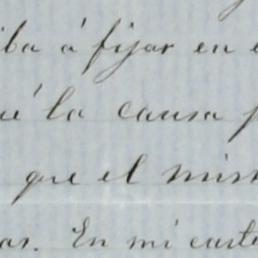 iba á fijar en e
ué la causa p
que el mism
as. En mi carta